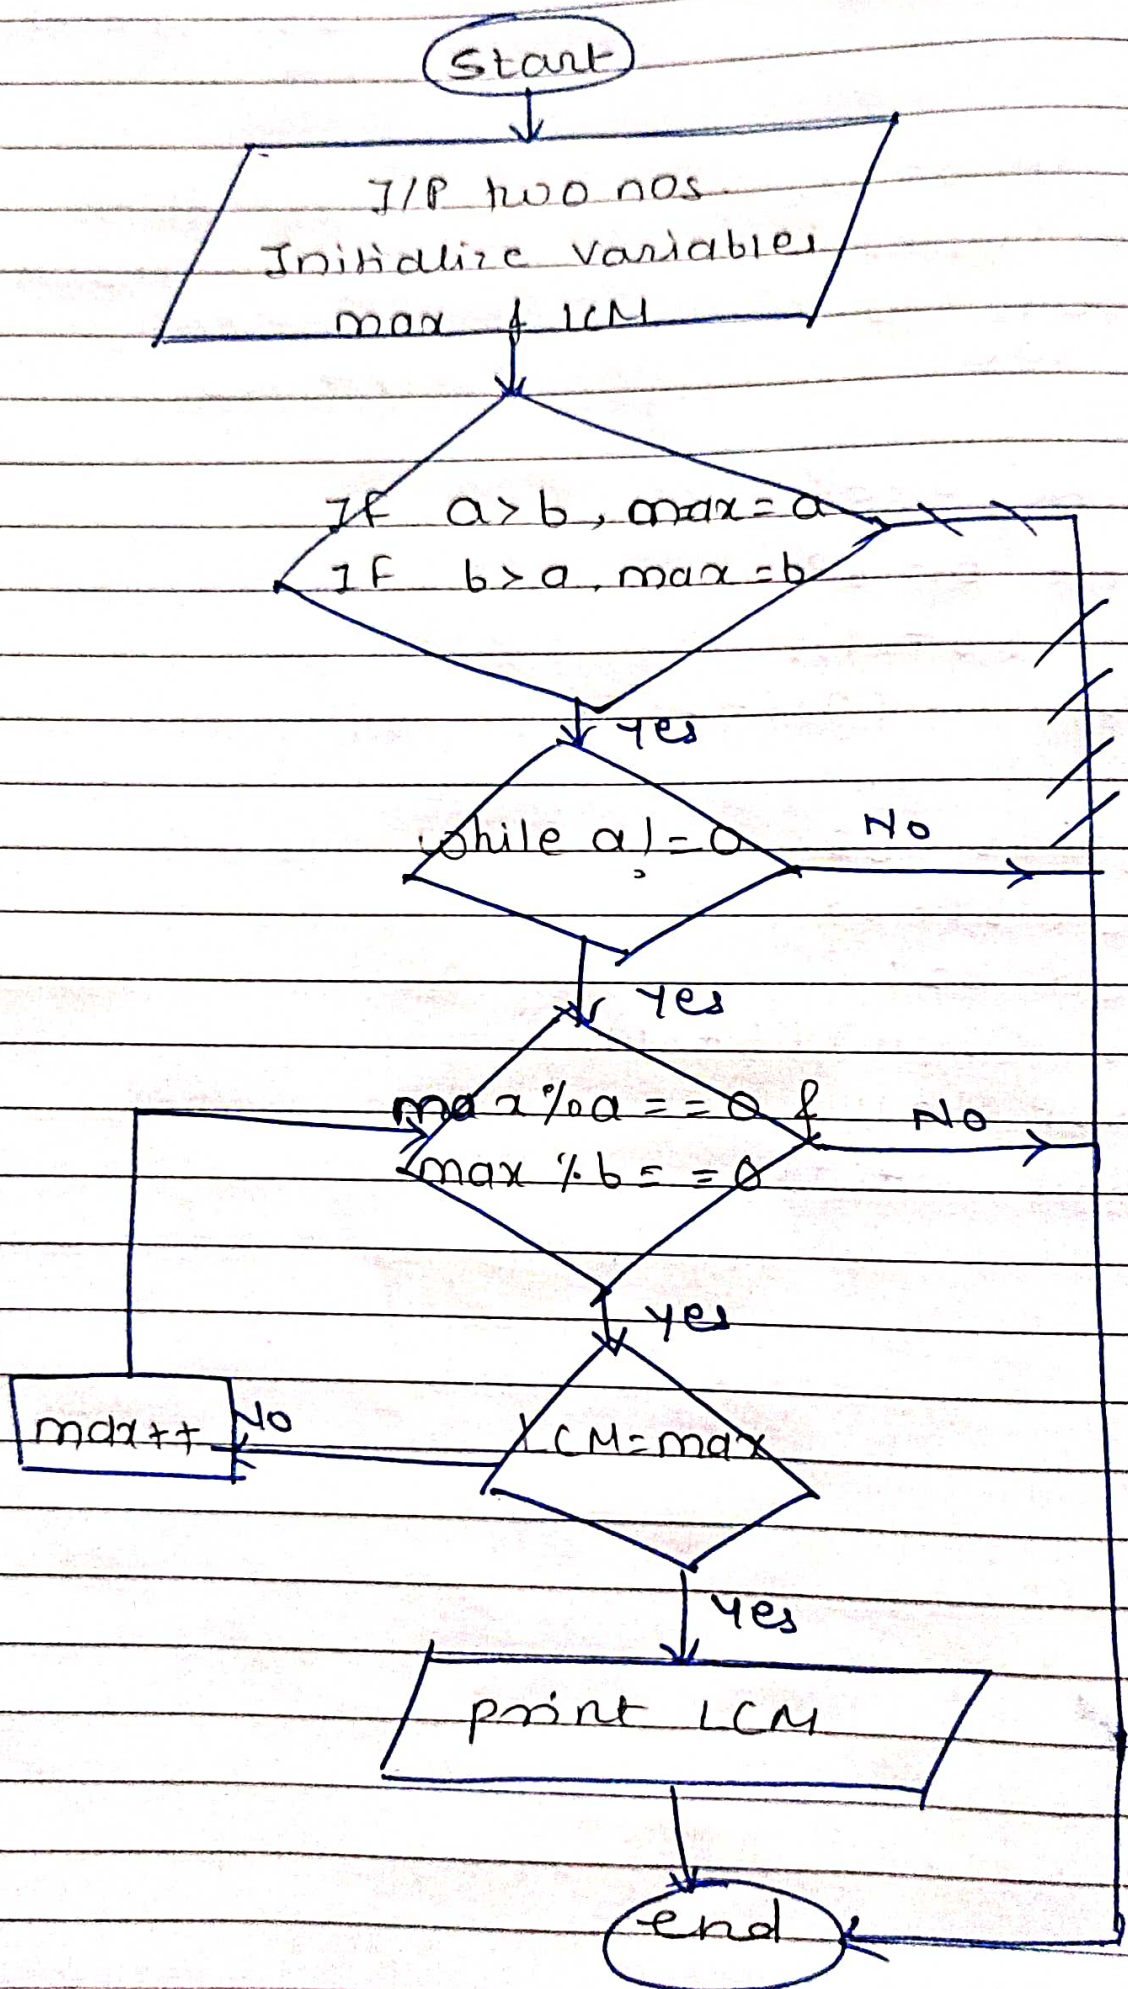 Start
I/P two nos
Initialize variables
max & LCM
If a>b, max=a
If b>a, max=b
yes
while a!=0
No
yes
max%a==0 &
max%b==0
No
yes
LCM=max
No
max++
yes
print LCM
end